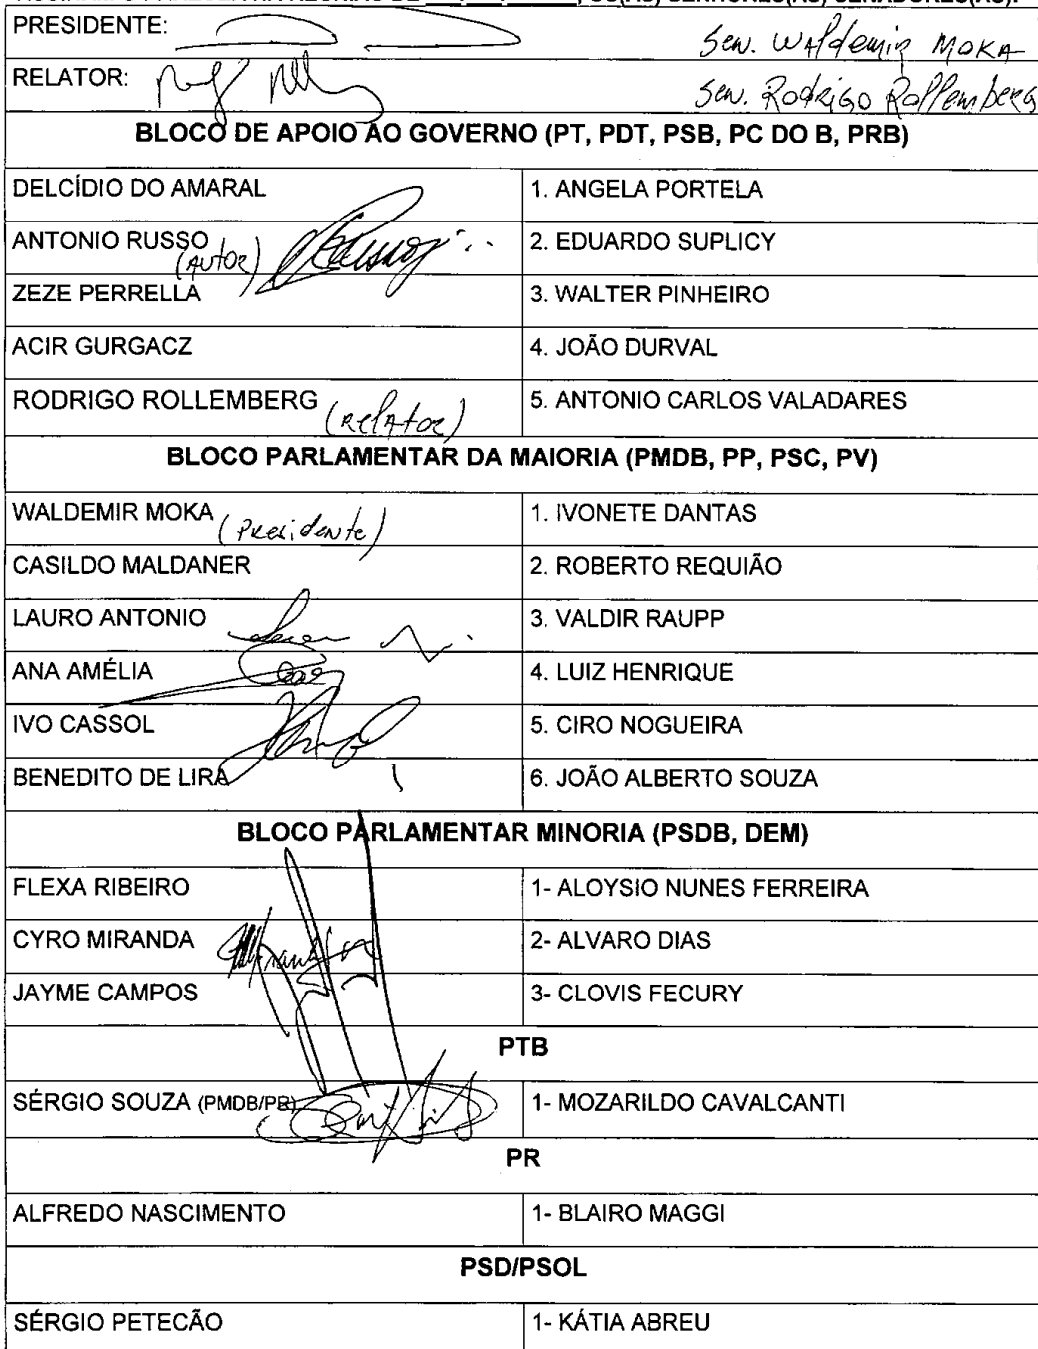 PRESIDENTE: Sen. Waldemir Moka
RELATOR: Sen. Rodrigo Rollemberg
BLOCO DE APOIO AO GOVERNO (PT, PDT, PSB, PC DO B, PRB)
DELCÍDIO DO AMARAL 1. ANGELA PORTELA
ANTONIO RUSSO (Autor) 2. EDUARDO SUPLICY
ZEZE PERRELLA 3. WALTER PINHEIRO
ACIR GURGACZ 4. JOÃO DURVAL
RODRIGO ROLLEMBERG (Relator) 5. ANTONIO CARLOS VALADARES
BLOCO PARLAMENTAR DA MAIORIA (PMDB, PP, PSC, PV)
WALDEMIR MOKA (Presidente) 1. IVONETE DANTAS
CASILDO MALDANER 2. ROBERTO REQUIÃO
LAURO ANTONIO 3. VALDIR RAUPP
ANA AMÉLIA 4. LUIZ HENRIQUE
IVO CASSOL 5. CIRO NOGUEIRA
BENEDITO DE LIRA 6. JOÃO ALBERTO SOUZA
BLOCO PARLAMENTAR MINORIA (PSDB, DEM)
FLEXA RIBEIRO 1- ALOYSIO NUNES FERREIRA
CYRO MIRANDA 2- ALVARO DIAS
JAYME CAMPOS 3- CLOVIS FECURY
PTB
SÉRGIO SOUZA (PMDB/PR) 1- MOZARILDO CAVALCANTI
PR
ALFREDO NASCIMENTO 1- BLAIRO MAGGI
PSD/PSOL
SÉRGIO PETECÃO 1- KÁTIA ABREU